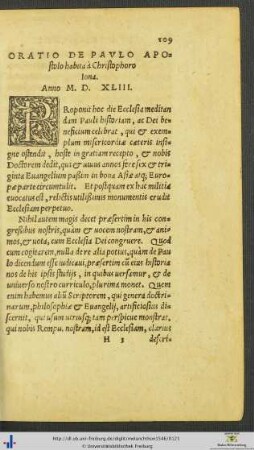 109
ORATIO DE PAVLO APO-
stolo habita à Christophoro
Iona.
Anno M. D. XLIII.
PRoponit hoc die Ecclesia meditan
dam Pauli historiam, ac Dei be-
neficium celebrat, qui & exem-
plum misericordiæ cæteris insi-
gne ostendit, hoste in gratiam recepto, & nobis
Doctorem dedit, qui & unus annos sex & tri-
ginta Euangelium passim in bona Asiæ atq; Euro-
pæ parte circumtulit. Et postquam ex hac militia
euocatus est, relictis utilissimis monumentis erudit
Ecclesiam perpetuo.
Nihil autem magis decet præsertim in his con-
gressibus nostris, quàm & uocem nostram, & ani-
mos, & uota, cum Ecclesia Dei congruere. Quod
cum cogitarem, nulla de re alia potius, quàm de Pau
lo dicendum esse iudicaui, præsertim cũ eius historia
nos de his ipsis studijs, in quibus uersamur, & de
uniuerso nostro curriculo, plurima monet. Quem
enim habemus aliũ Scriptorem, qui genera doctri-
narum, philosophiæ & Euangelij, artificiosius di-
scernit, qui usum utriusq; tam perspicue monstrat,
qui nobis Rempu. nostram, id est Ecclesiam, clarius
H 3 descri-
http://dl.ub.uni-freiburg.de/diglit/melanchthon1546/0121
© Universitätsbibliothek Freiburg